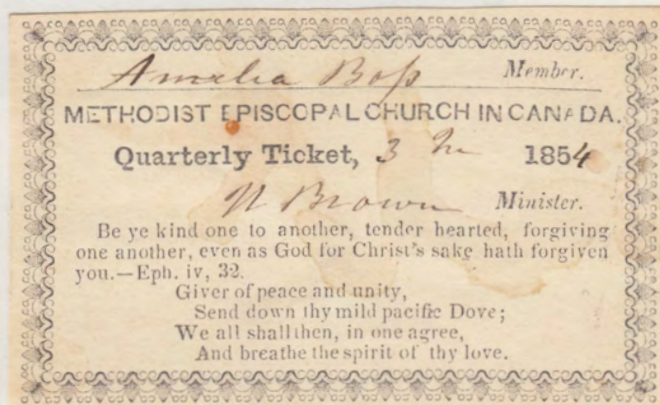 Amelia Boss Member.
METHODIST EPISCOPAL CHURCH IN CANADA.
Quarterly Ticket, 3 1854
Brown Minister.
Be ye kind one to another, tender hearted, forgiving
one another, even as God for Christ's sake hath forgiven
you.—Eph. iv, 32.
Giver of peace and unity,
Send down thy mild pacific Dove;
We all shall then, in one agree,
And breathe the spirit of thy love.